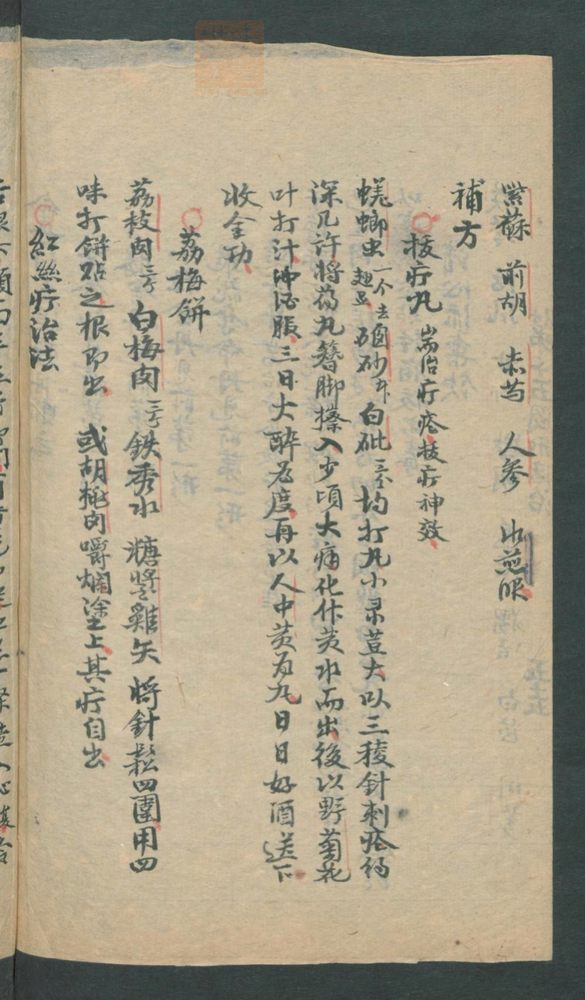 紫蘇　前胡　赤芍　人參　水煎服
補方
拔疔丸　耑治疔瘡拔疔神效
蜣螂虫一个去翅足　硇砂　白砒　均打丸小菉荳大以三稜針刺瘡約
深几許將药丸簪脚搽入少頃大痛化作黄水而出後以野菊花
叶打汁冲酒服三日大醉為度再以人中黄為丸日日好酒送下
收全功
荔梅餅
荔枝肉　白梅肉　鉄秀水　糖雞矢　將針鬆四圍用四
味打餅貼之根即出　或胡桃肉嚼爛塗上其疔自出
紅絲疔治法